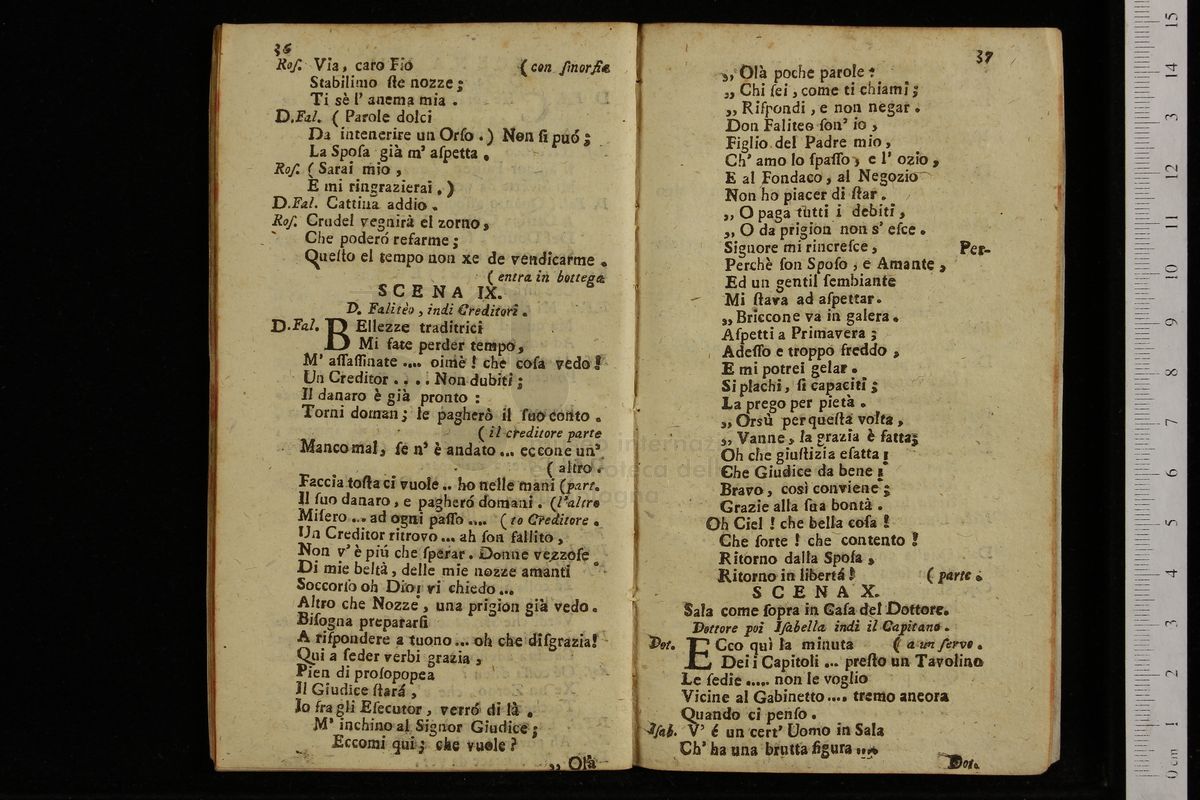 36
Roſ. Via, caro Fio (con ſmorfie
Stabilimo ſte nozze;
Ti sè l' anema mia.
D.Fal. (Parole dolci
Da intenerire un Orſo.) Non ſi può;
La Spoſa già m' aſpetta.
Roſ. (Sarai mio,
E mi ringrazierai.)
D.Fal. Cattina addio.
Roſ. Crudel vegnirà el zorno,
Che poderó refarme;
Queſto el tempo non xe de vendicarme.
(entra in bottega
SCENA IX.
D. Falitèo, indi Creditori.
D.Fal. BEllezze traditrici
Mi fate perder tempo,
M' aſſaſſinate .... oimè! che coſa vedo!
Un Creditor .... Non dubiti;
Il danaro è già pronto:
Torni doman; le pagherò il ſuo conto.
(il creditore parte
Manco mal, ſe n' è andato ... eccone un'
(altro.
Faccia toſta ci vuole .. ho nelle mani (part.
Il ſuo danaro, e pagheró domani. (l'altro
Miſero ... ad ogni paſſo .... (to Creditore.
Un Creditor ritrovo ... ah ſon fallito,
Non v' è piú che ſperar. Donne vezzoſe
Di mie beltà, delle mie nozze amanti
Soccorſo oh Dio! vi chiedo ...
Altro che Nozze, una prigion già vedo.
Biſogna prepararſi
A riſpondere a tuono ... oh che diſgrazia!
Qui a ſeder verbi grazia,
Pien di proſopopea
Il Giudice ſtará,
Io fra gli Eſecutor, verró di là.
M' inchino al Signor Giudice;
Eccomi qui; che vuole?
,, Olà
37
,, Olà poche parole:
,, Chi ſei, come ti chiami;
,, Riſpondi, e non negar.
Don Faliteo ſon' io,
Figlio del Padre mio,
Ch' amo lo ſpaſſo, e l' ozio,
E al Fondaco, al Negozio
Non ho piacer di ſtar.
,, O paga tutti i debiti,
,, O da prigion non s' eſce.
Signore mi rincreſce, Per-
Perchè ſon Spoſo, e Amante,
Ed un gentil ſembiante
Mi ſtava ad aſpettar.
,, Briccone va in galera.
Aſpetti a Primavera;
Adeſſo e troppo freddo,
E mi potrei gelar.
Si plachi, ſi capaciti;
La prego per pietà.
,, Orsù per queſta volta,
,, Vanne, la grazia è fatta;
Oh che giuſtizia eſatta!
Che Giudice da bene!
Bravo, così conviene;
Grazie alla ſua bontà.
Oh Ciel! che bella coſa!
Che ſorte! che contento!
Ritorno dalla Spoſa,
Ritorno in libertá! (parte.
SCENA X.
Sala come ſopra in Caſa del Dottore.
Dottore poi Iſabella indi il Capitano.
Dot. ECco quì la minuta (a un ſervo.
Dei i Capitoli ... preſto un Tavolino
Le ſedie ..... non le voglio
Vicine al Gabinetto .... tremo ancora
Quando ci penſo.
Iſab. V' é un cert' Uomo in Sala
Ch' ha una brutta figura ....
Dot.